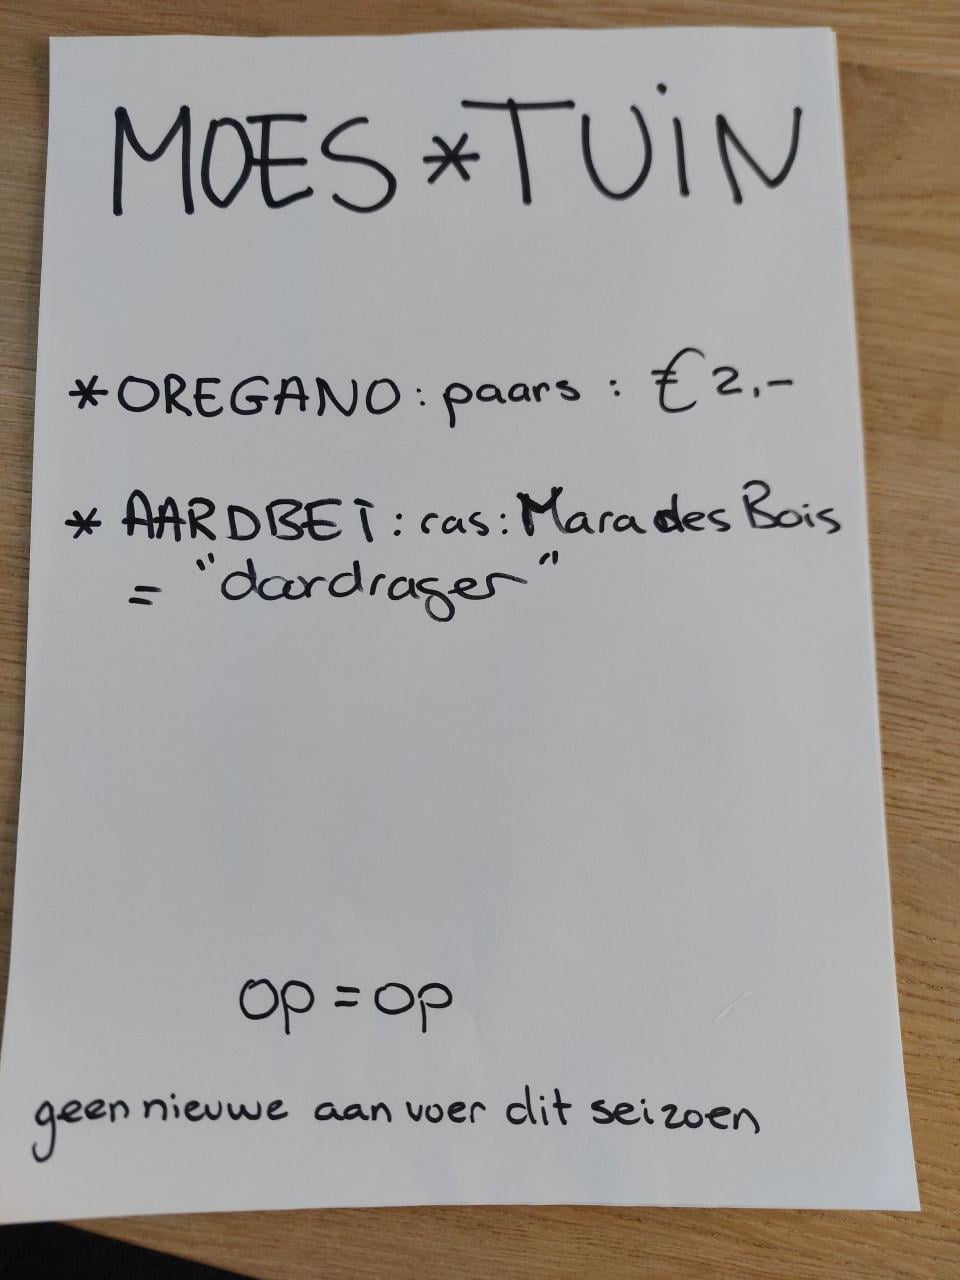 MOES*TUiN
*OREGANO: paars : €2,-
* AARDBEI: ras: Mara des Bois
= "doordrager"
op = op
geen nieuwe aanvoer dit seizoen